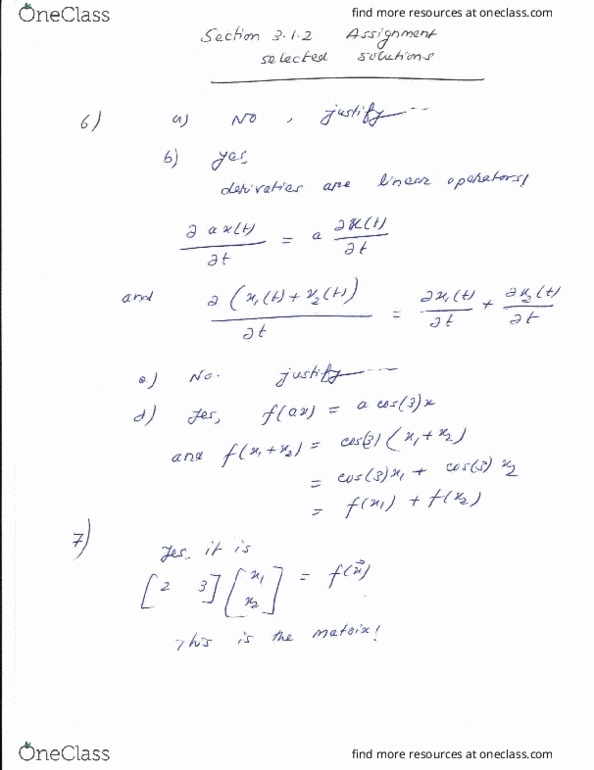 OneClass
find more resources at oneclass.com
Section 3.1.2 Assignment
selected solutions
6) a) No, justify ---
b) yes,
derivaties are linear operators!
∂ a x(t) / ∂t = a ∂x(t) / ∂t
and ∂ (x₁(t) + x₂(t)) / ∂t = ∂x₁(t) / ∂t + ∂x₂(t) / ∂t
c) No. justify ---
d) yes, f(ax) = a cos(3)x
and f(x₁+x₂) = cos(3) (x₁+x₂)
= cos(3)x₁ + cos(3) x₂
= f(x₁) + f(x₂)
7) yes, it is
[2 3] [x₁ x₂] = f(x⃗)
This is the matrix!
OneClass
find more resources at oneclass.com